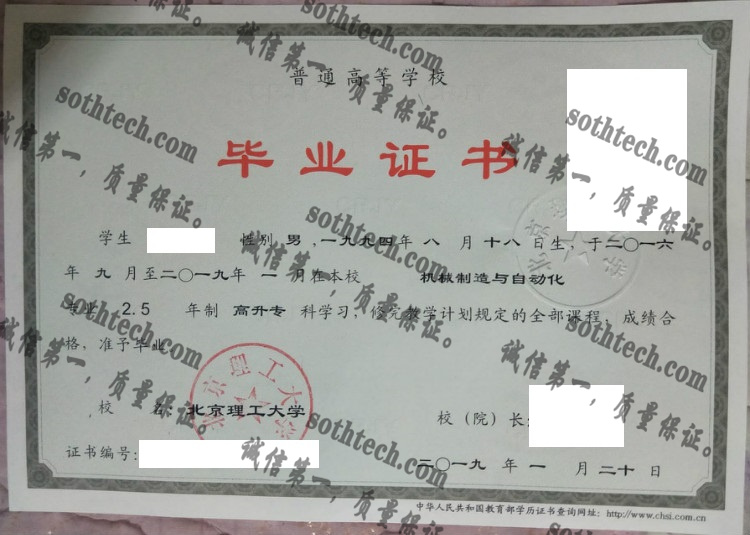 普通高等学校
毕业证书
学生 性别 男 ,一九九四年 八 月 十八日生，于二〇一六
年 九 月至二〇一九年 一 月在本校 机械制造与自动化
专业 2.5 年制 高升专 科学习，修完教学计划规定的全部课程，成绩合
格，准予毕业
校 名: 北京理工大学
校（院）长:
证书编号:
二〇一九 年 一 月 二十 日
中华人民共和国教育部学历证书查询网址: http://www.chsi.com.cn
北京理工大学
sothtech.com
诚信第一，质量保证。
sothtech.com
诚信第一，质量保证。
sothtech.com
诚信第一，质量保证。
sothtech.com
诚信第一，质量保证。
sothtech.com
诚信第一，质量保证。
sothtech.com
诚信第一，质量保证。
sothtech.com
诚信第一，质量保证。